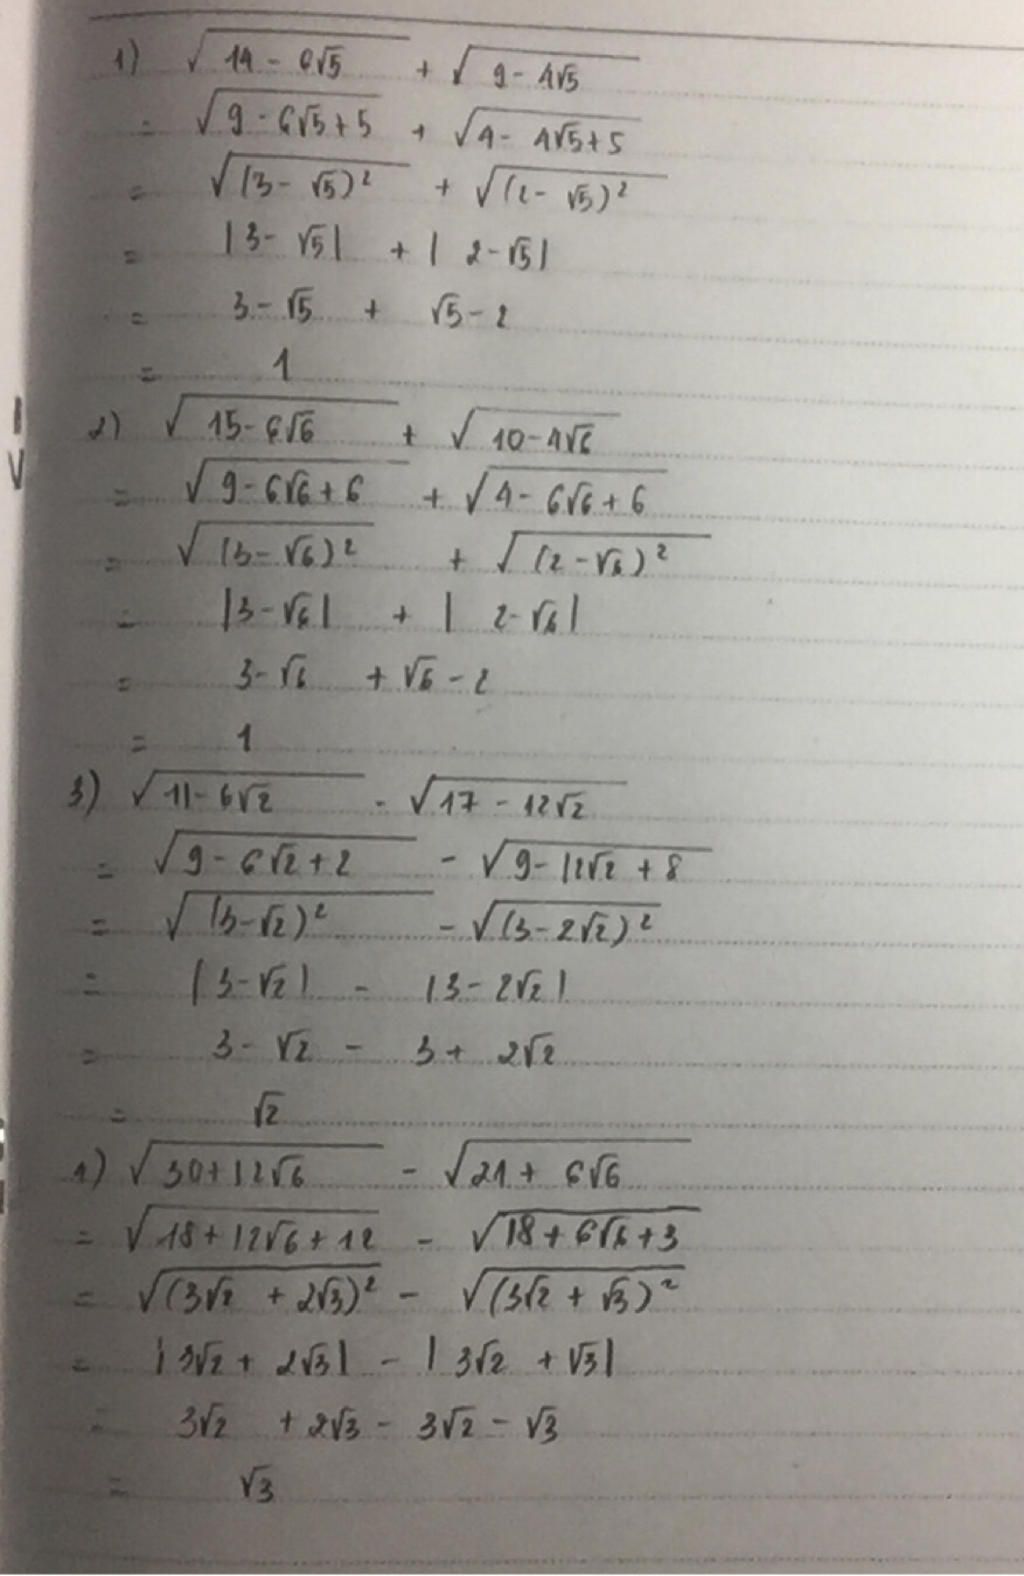 1) √(14 - 6√5) + √(9 - 4√5)
= √(9 - 6√5 + 5) + √(4 - 4√5 + 5)
= √((3 - √5)²) + √((2 - √5)²)
= |3 - √5| + |2 - √5|
= 3 - √5 + √5 - 2
= 1
2) √(15 - 6√6) + √(10 - 4√6)
= √(9 - 6√6 + 6) + √(4 - 6√6 + 6)
= √((3 - √6)²) + √((2 - √6)²)
= |3 - √6| + |2 - √6|
= 3 - √6 + √6 - 2
= 1
3) √(11 - 6√2) - √(17 - 12√2)
= √(9 - 6√2 + 2) - √(9 - 12√2 + 8)
= √((3 - √2)²) - √((3 - 2√2)²)
= |3 - √2| - |3 - 2√2|
= 3 - √2 - 3 + 2√2
= √2
4) √(30 + 12√6) - √(21 + 6√6)
= √(18 + 12√6 + 12) - √(18 + 6√6 + 3)
= √((3√2 + 2√3)²) - √((3√2 + √3)²)
= |3√2 + 2√3| - |3√2 + √3|
= 3√2 + 2√3 - 3√2 - √3
= √3